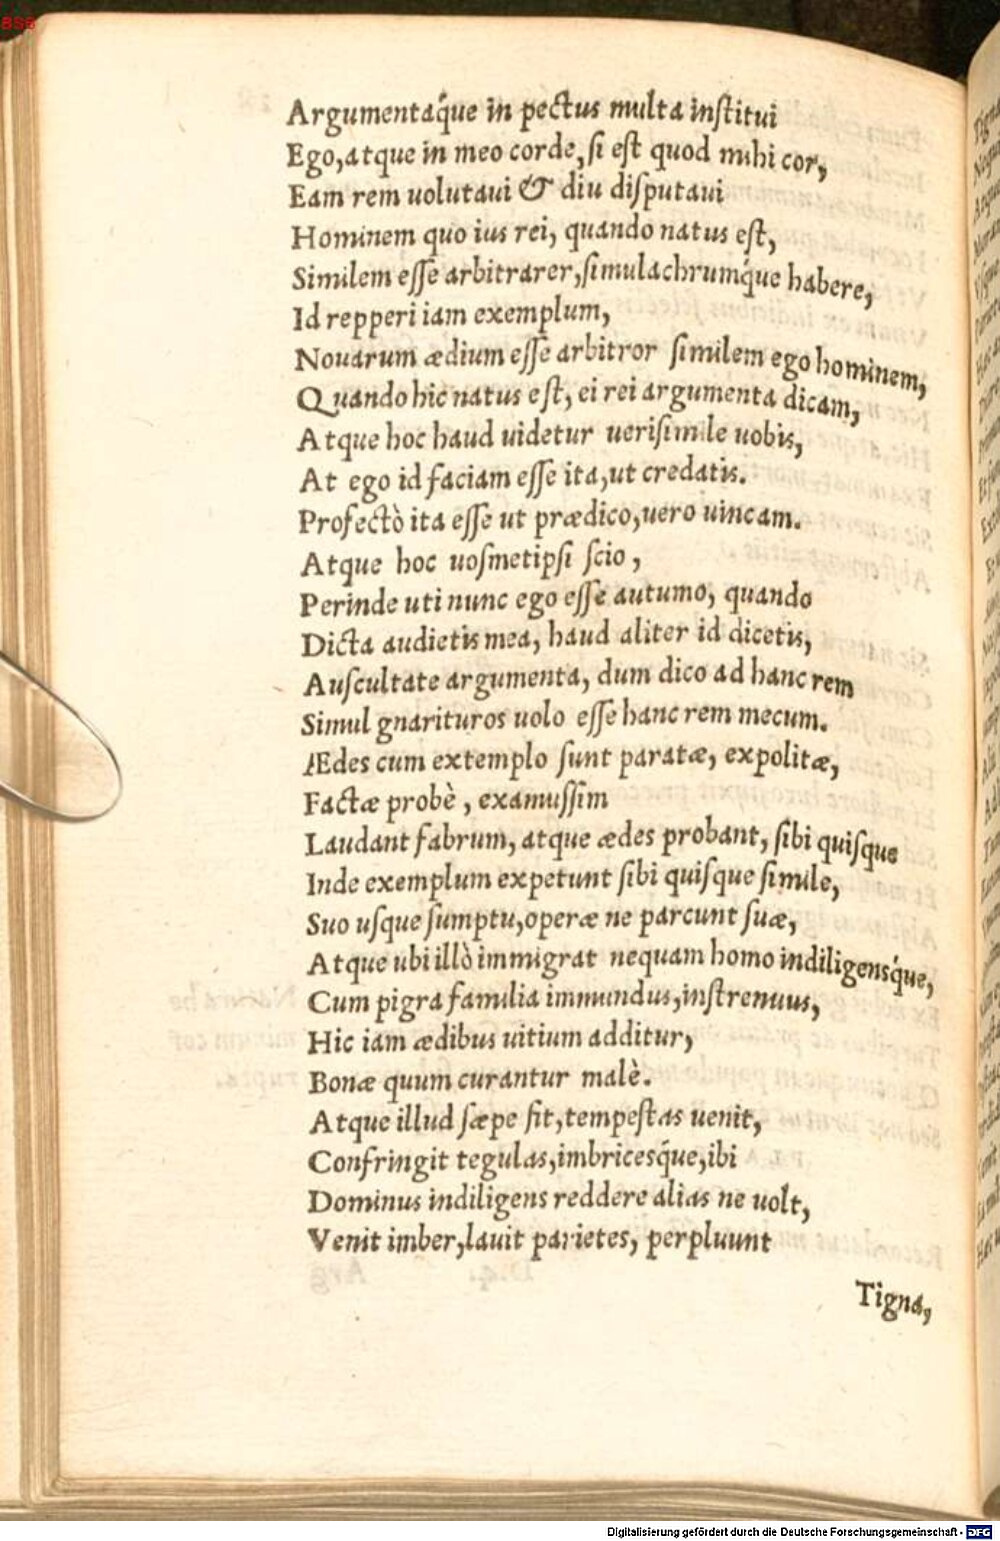 BSB
Argumentaq́ue in pectus multa institui
Ego, atque in meo corde, si est quod mihi cor,
Eam rem uolutaui & diu disputaui
Hominem quo ius rei, quando natus est,
Similem esse arbitrarer, simulachrumq́ue habere,
Id repperi iam exemplum,
Nouarum ædium esse arbitror similem ego hominem,
Quando hic natus est, ei rei argumenta dicam,
Atque hoc haud uidetur uerisimile uobis,
At ego id faciam esse ita, ut credatis.
Profectò ita esse ut prædico, uero uincam.
Atque hoc uosmetipsi scio,
Perinde uti nunc ego esse autumo, quando
Dicta audietis mea, haud aliter id dicetis,
Auscultate argumenta, dum dico ad hanc rem
Simul gnarituros uolo esse hanc rem mecum.
Ædes cum extemplo sunt paratæ, expolitæ,
Factæ probè, examussim
Laudant fabrum, atque ædes probant, sibi quisque
Inde exemplum expetunt sibi quisque simile,
Suo usque sumptu, operæ ne parcunt suæ,
Atque ubi illò immigrat nequam homo indiligensq́ue,
Cum pigra familia immundus, instrenuus,
Hic iam ædibus uitium additur,
Bonæ quum curantur malè.
Atque illud sæpe fit, tempestas uenit,
Confringit tegulas, imbricesq́ue, ibi
Dominus indiligens reddere alias ne uolt,
Venit imber, lauit parietes, perpluunt
Tigna,
Digitalisierung gefördert durch die Deutsche Forschungsgemeinschaft - DFG